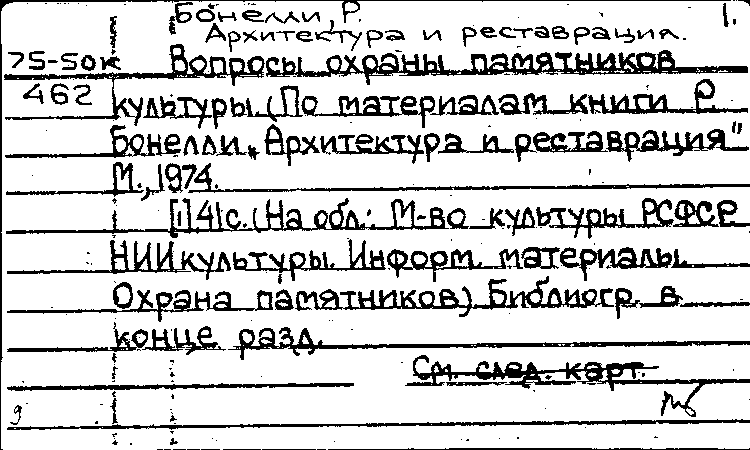 Бонелли, Р. 1.
Архитектура и реставрация.
75-50к Вопросы охраны памятников
462 культуры. (По материалам книги Р.
Бонелли „Архитектура и реставрация"
М., 1974.
[1] 41 с. (На обл.: М-во культуры РСФСР
НИИ культуры. Информ. материалы.
Охрана памятников) Библиогр. в
конце разд.
См. след. карт.
9